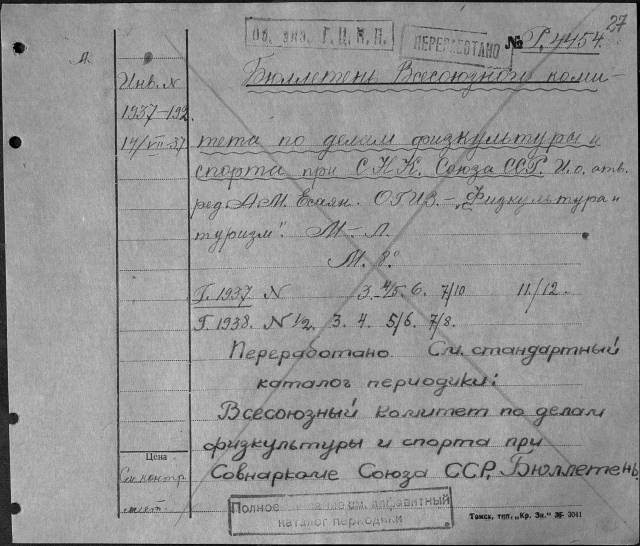 27
Об. биб. Г.Ц.К.П.
ПЕРЕРАБОТАНО
№ Р.4454.
Л.
Инв. N
Бюллетень Всесоюзного коми-
1937-192
14/VII-37
тета по делам физкультуры и
спорта при С Н К. Союза ССР. И.о. отв.
ред. А.М. Есаян. ОГИЗ. – „Физкультура и
туризм". М – Л.
М. 8°
Г. 1937 N 3. 4/5. 6. 7/10 11/12.
Г. 1938. N 1/2. 3. 4. 5/6. 7/8.
Переработано. См. стандартный
каталог периодики:
Всесоюзный комитет по делам
физкультуры и спорта при
Цена
См. контр.
Совнаркоме Союза ССР. Бюллетень.
Полное алфавитный
каталог периодики
Томск, тип. „Кр. Зн." 36- 3041